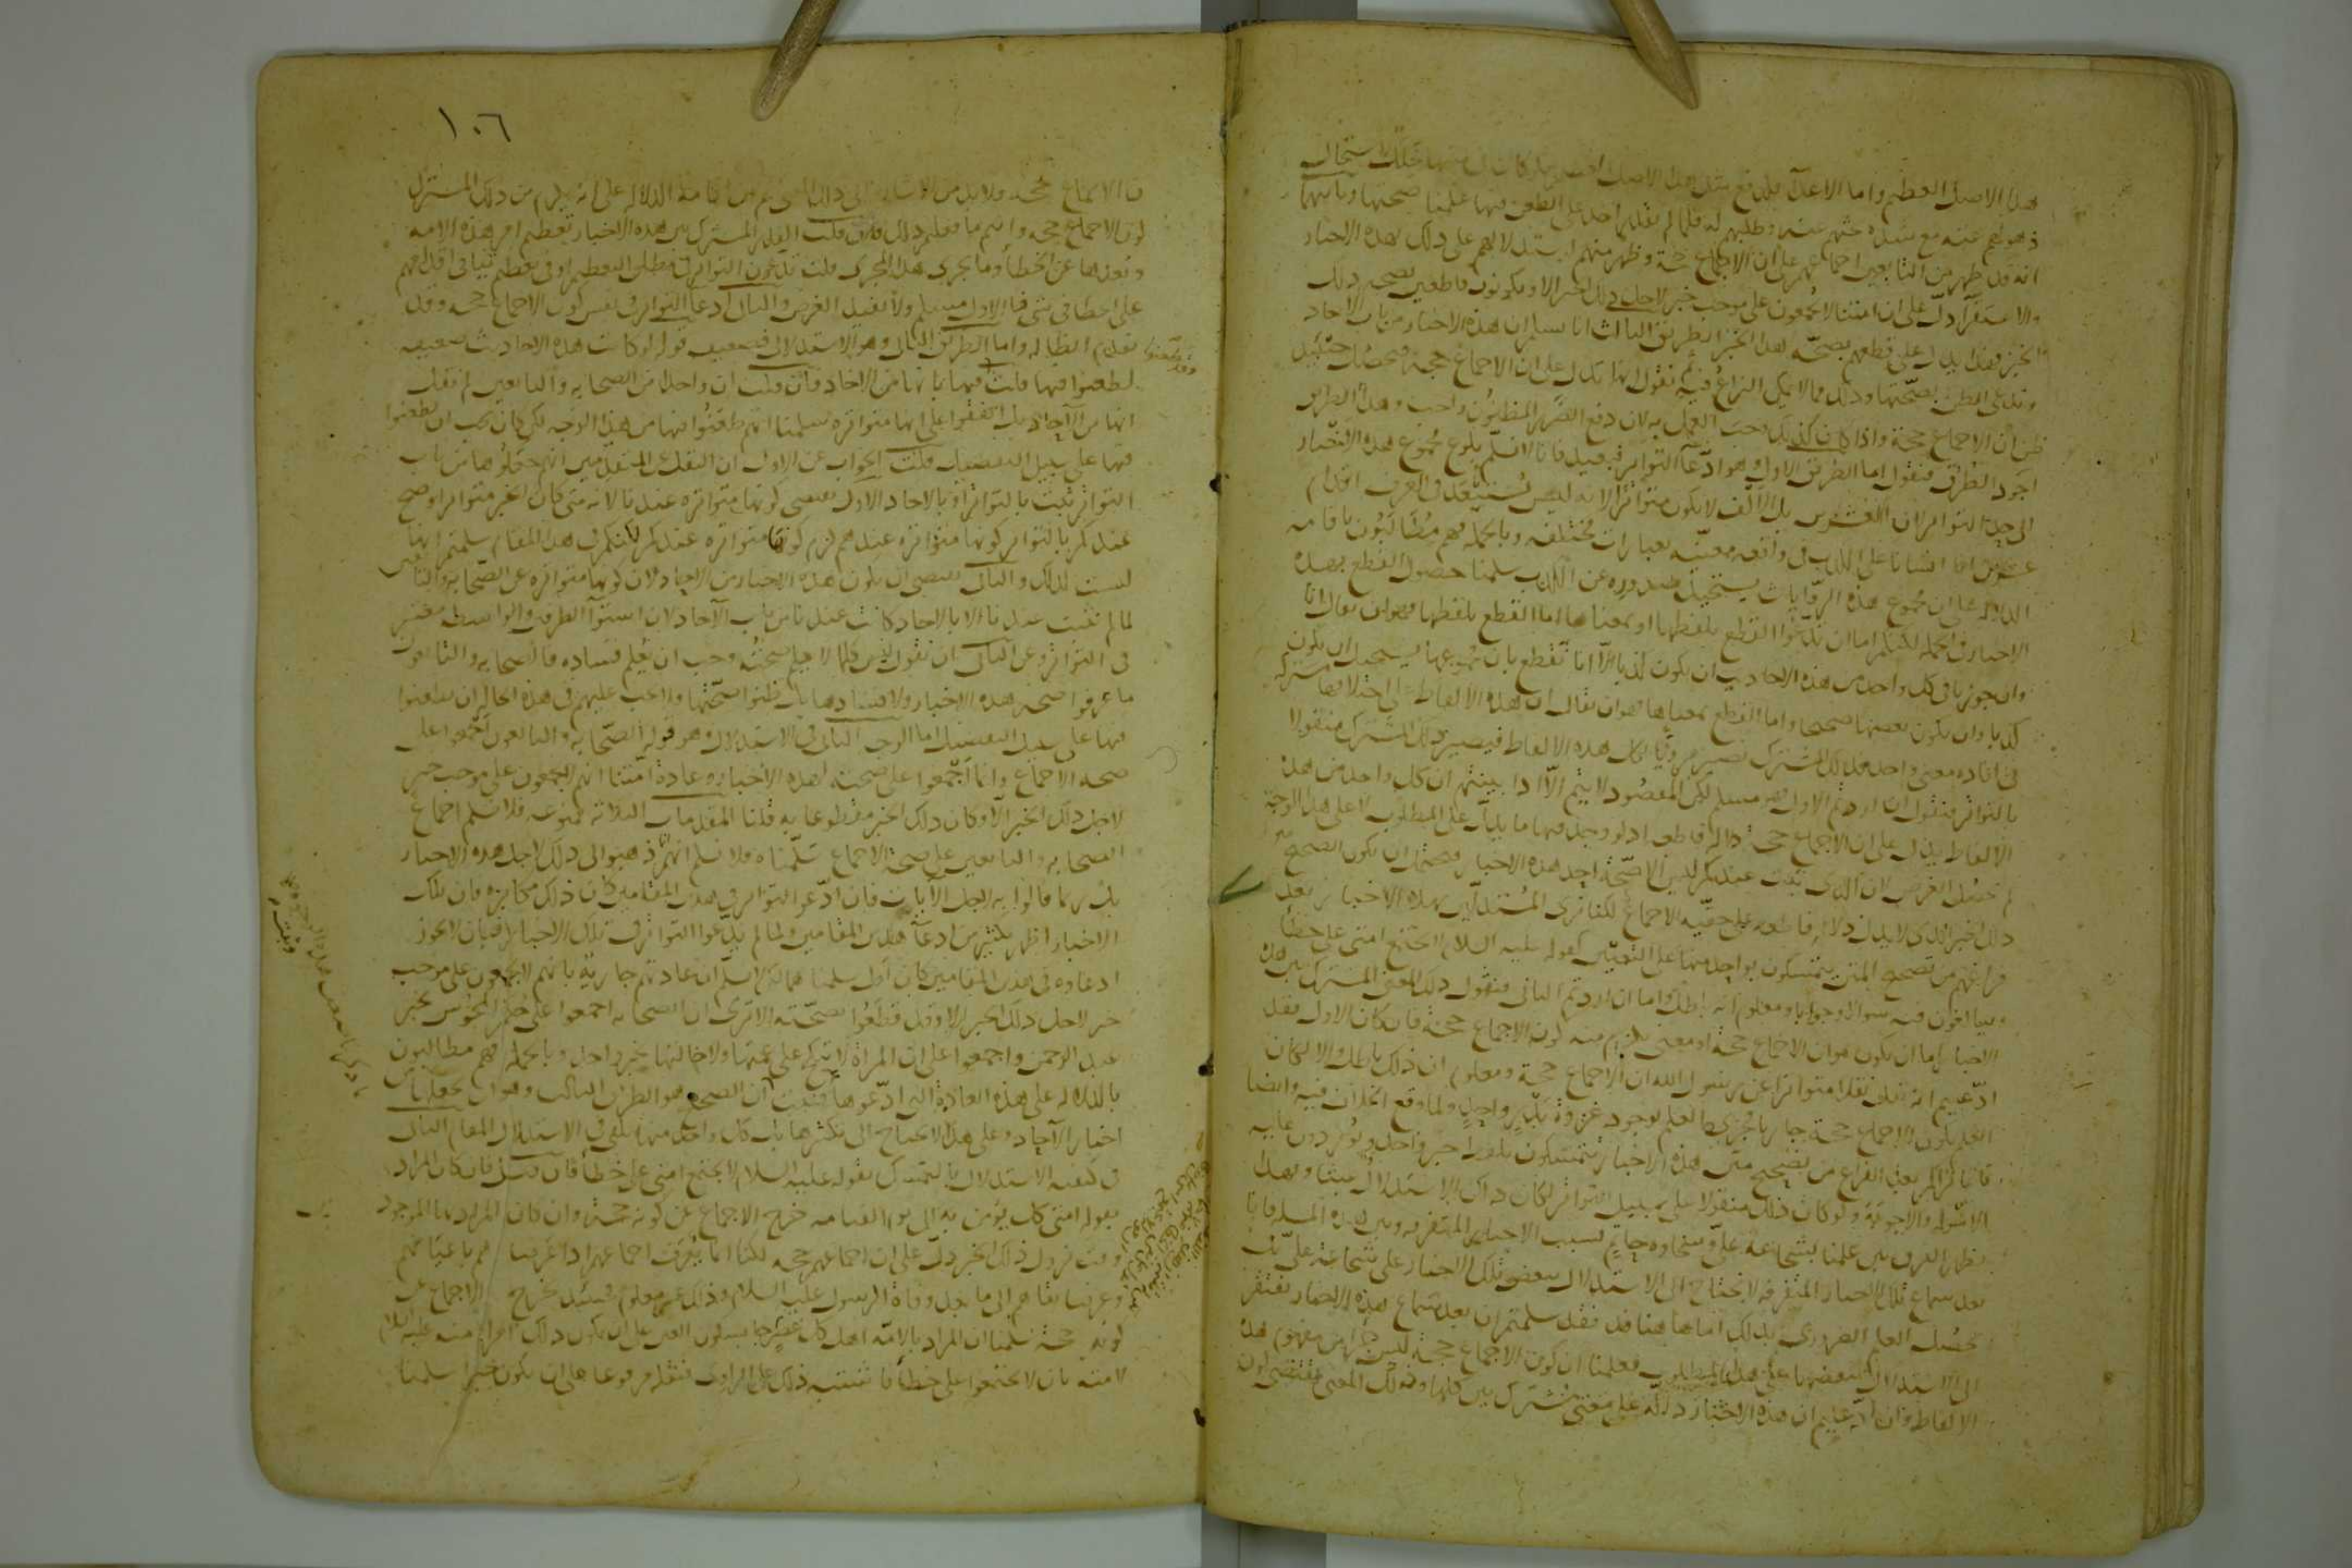 هذا الاصل العظيم واما الاعدا فلان وقع مثل هذا الاصل
ذهولهم عنه مع شدة بحثهم عنه وطلبهم له فلما لم يقدر احد على الطعن فيها علمنا صحتها وثانيهما
انه قد ظهر من التابعين اجماعهم على ان الاجماع حجة وظهر منهم استدلالهم على ذلك بهذه الاخبار
والاستقرآ دل على ان امتنا لا يجمعون على موجب خبر لاجل ذلك الخبر الا ويكونون قاطعين بصحة ذلك
الخبر فهذا يدل على قطعهم بصحة هذا الخبر الطريق الثالث انا نسلم ان هذه الاخبار من باب الاحاد
وندعى الظن بصحتها وذلك مما لا يمكن النزاع فيه ثم نقول انها تدل على ان الاجماع حجة فحصل حينئذ
ظن ان الاجماع حجة واذا كان كذلك وجب العمل به لان دفع الضرر المظنون واجب وهذا الطريق
اجود الطرق فنقول اما الطريق الاول وهو ادعآ التواتر فبعيد فانا لا نسلم بلوغ مجموع هذه الاخبار
الى حد التواتر لان العشرين بل الالف لا يكون متواترا لانه ليس يستبعد فى العرف اقدام
عشرين انسانا على الكذب فى واقعة معينة بعبارات مختلفة وبالجملة فهم مطالبون باقامة
الدلالة على ان مجموع هذه الروايات يستحيل صدوره عن الكذب سلمنا حصول القطع بهذه
الاخبار فى الجملة لكنكم اما ان تدعوا القطع بلفظها او بمعناها اما القطع بلفظها فهو ان يقال انا
وان جوزنا فى كل واحد من هذه الاحاديث ان يكون كذبا الا انا نقطع بان مجموعها يستحيل ان يكون
كذبا وان يكون بعضها صحيحا واما القطع بمعناها فهو ان يقال ان هذه الالفاظ على اختلافها مشتركة
فى افادة معنى واحد فذلك المشترك يصير مرويا بكل هذه الالفاظ فيصير ذلك المشترك منقولا
بالتواتر فنقول ان اردتم الاول فهو مسلم لكن المقصود لا يتم الا اذا بينتم ان كل واحد من هذه
الالفاظ يدل على ان الاجماع حجة دلالة قاطعة اذ لو وجد فيها ما يدل على المطلوب لا على هذا الوجه
لم يحصل الغرض لان الذى ثبت عندكم ليس الا صحة احد هذه الاخبار فيحتمل ان يكون الصحيح
ذلك الخبر الذى لا يدل دلالة قاطعة على حقية الاجماع لكنا نرى المستدلين بهذه الاخبار بعد
فراغهم من تصحيح المتن يتمسكون بواحد منها على التعيين كقوله عليه السلام لا تجتمع امتى على خطأ
ويبالغون فيه سوالا وجوابا ومعلوم انه باطل واما ان اردتم الثانى فنقول ذلك المعنى المشترك بين هذه
الاخبار اما ان يكون هو ان الاجماع حجة او معنى يلزم منه كون الاجماع حجة فان كان الاول فقد
ادعيتم انه نقل نقلا متواترا عن رسول الله ان الاجماع حجة ومعلوم ان ذلك باطل والا لكان
العلم بكون الاجماع حجة جاريا مجرى العلم بوجود غزوة بدر واحد ولما وقع الخلاف فيه وايضا
فانا نراكم بعد الفراغ من تصحيح متن هذه الاخبار تتمسكون بلفظ خبر واحد وتوردون عليه
الاسولة والاجوبة ولو كان ذلك منقولا على سبيل التواتر لكان ذلك الاستدلال عبثا وبهذا
يظهر الفرق بين علمنا بشجاعة على وسخاوة حاتم بسبب الاخبار المتفرقة وبين هذه المسلة فانا
بعد سماع تلك الاخبار المتفرقة لا نحتاج الى الاستدلال ببعض تلك الاخبار على شجاعة على بل
يحصل العلم الضرورى بذلك اما هاهنا فقد سلمتم ان بعد سماع هذه الاخبار نفتقر
الى الاستدلال ببعضها على هذا المطلوب فعلمنا ان كون الاجماع حجة ليس جزا من مفهوم هذه
الالفاظ وان ادعيتم ان هذه الاخبار دالة على معنى مشترك بين كلها وذلك المعنى يقتضى كون
١٠٦
الاجماع حجة ولابد من الاشارة الى ذلك المعنى ثم من اقامة الدلالة على انه يلزم من ذلك المشترك
كون الاجماع حجة وانتم ما فعلتم ذلك فان قلت القدر المشترك بين هذه الاخبار تعظيم امر هذه الامة
وبعدها عن الخطأ وما يجرى هذا المجرى قلت تدعون التواتر فى مطلق التعظيم او فى تعظيم ينافى اقدامهم
على الخطأ فى شى فا الاول مسلم ولا يفيد الغرض والثانى ادعآ التواتر فى نفس كون الاجماع حجة وقد
تقدم ابطاله واما الطريق الثانى وهو الاستدلال فضعيف قوله لو كانت هذه الاحاديث ضعيفة
لطعنوا فيها قلت فيها بانها من الاحاد فان قلت ان واحدا من الصحابة والتابعين لم يقل
انها من الآحاد بل اتفقوا على انها متواترة سلمنا انهم طعنوا فيها من هذا الوجه لكن كان يجب ان يطعنوا
فيها على سبيل التفصيل قلت الجواب عن الاول ان النقل عن المتقدمين انهم جعلوها من باب
التواتر ثبت بالتواتر او بالاحاد الاول يقتضى كونها متواترة عندنا لانه متى كان الخبر متواترا وصح
عندكم بالتواتر كونها متواترة عندهم لزم كونها متواترة عندكم لكنكم فى هذا المقام سلمتم انها
ليست كذلك والثانى يقتضى ان يكون هذه الاخبار من الاحاد لان كونها متواترة عن الصحابة والتابعين
لما لم يثبت عندنا الا بالاحاد كانت عندنا من باب الآحاد لان استوآ الطرفين والواسطة معتبر
فى التواتر وعن الثانى ان نقول ليس كلما لا يعلم صحته وجب ان يعلم فساده فالصحابة والتابعون
ما عرفوا صحة هذه الاخبار ولا فسادها بل ظنوا صحتها ولا يجب عليهم فى هذه الحالة ان يطعنوا
فيها على سبيل التفصيل اما الوجه الثانى فى الاستدلال وهو قوله الصحابة والتابعون اجمعوا على
صحة الاجماع وانما اجمعوا على صحته لهذه الاخبار وعادة امتنا انهم لا يجمعون على موجب خبر
لاجل ذلك الخبر الا وكان ذلك الخبر مقطوعا به قلنا المقدمات الثلاثة ممنوعة فلا نسلم اجماع
الصحابة والتابعين على صحة الاجماع سلمناه ولا نسلم انهم ذهبوا الى ذلك لاجل هذه الاخبار
بل ربما قالوا به لاجل الآيات فان ادعوا التواتر فى هذين المقامين كان ذلك مكابرة فان تلك
الاخبار اظهر بكثير من ادعآ هذين المقامين ولما لم يدعوا التواتر فى تلك الاخبار فبان لا يجوز
ادعاوه فى هذين المقامين كان اولى سلمنا هما لكن لا نسلم ان عادتهم جارية بانهم لا يجمعون على موجب
خبر لاجل ذلك الخبر الا وقد قطعوا بصحته الا ترى ان الصحابة اجمعوا على حكم المجوس بخبر
عبد الرحمن واجمعوا على ان المراة لا تنكح على عمتها ولا خالتها بخبر واحد وبالجملة فهم مطالبون
بالدلالة على هذه العادة التى ادعوها فثبت ان الصحيح هو الطريق الثالث وهو ان نجعلها من
اخبار الآحاد وعلى هذا لا نحتاج الى تكثرها بل كل واحد منها يكفى فى الاستدلال المقام الثانى
فى كيفية الاستدلال بالتمسك بقوله عليه السلام لا تجتمع امتى على خطأ فان قيل فان كان المراد
بقوله امتى كل يؤمن به الى يوم القيامة خرج الاجماع عن كونه حجة وان كان المراد بها الموجود
وقت نزول ذلك الخبر دل على ان اجماعهم حجة لكنا انما يعرف اجماعهم اذا عرفناهم باعيانهم
وعرفنا بقاهم الى ما بعد وفاة الرسول عليه السلام وذلك غير معلوم فحينئذ يخرج الاجماع عن
كونه حجة سلمنا ان المراد بالامة اهل كل عصر
لامته بان لا يجتمعوا على خطأ فاشتبه ذلك على الراوى فنقله مرفوعا على ان يكون خبرا سلمنا